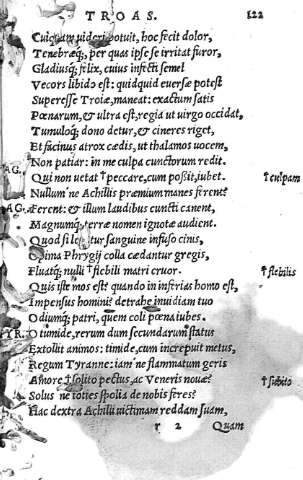 TROAS. 122
Cuiquam uideri potuit, hoc fecit dolor,
Tenebræq;, per quas ipse se irritat furor,
Gladiusq; felix, cuius infecti semel
Vecors libido est: quidquid euersæ potest
Superesse Troiæ, maneat: exactum satis
Pœnarum, & ultra est, regia ut uirgo occidat,
Tumuloq; dono detur, & cineres riget,
Et facinus atrox cædis, ut thalamos uocem,
Non patiar: in me culpa cunctorum redit.
AG. Qui non uetat † peccare, cum possit, iubet. † culpam
Nullum ne Achillis præmium manes ferent?
AG. Ferent: & illum laudibus cuncti canent,
Magnumq; terræ nomen ignotæ audient.
Quod si leuatur sanguine infuso cinis,
Opima Phrygij colla cædantur gregis,
Fluatq; nulli † flebili matri cruor. † flebilis
Quis iste mos est? quando in inferias homo est,
Impensus hominis? detrahe inuidiam tuo
Odiumq; patri, quem coli pœna iubes.
YR. O timide, rerum dum secundarum status
Extollit animos: timide, cum increpuit metus,
Regum Tyranne: iam ne flammatur geris
Amore † solito pectus, ac Veneris nouæ? † subito
Solus ne toties spolia de nobis feres?
Hac dextra Achilli uictimam reddam suam,
r 2 Quam